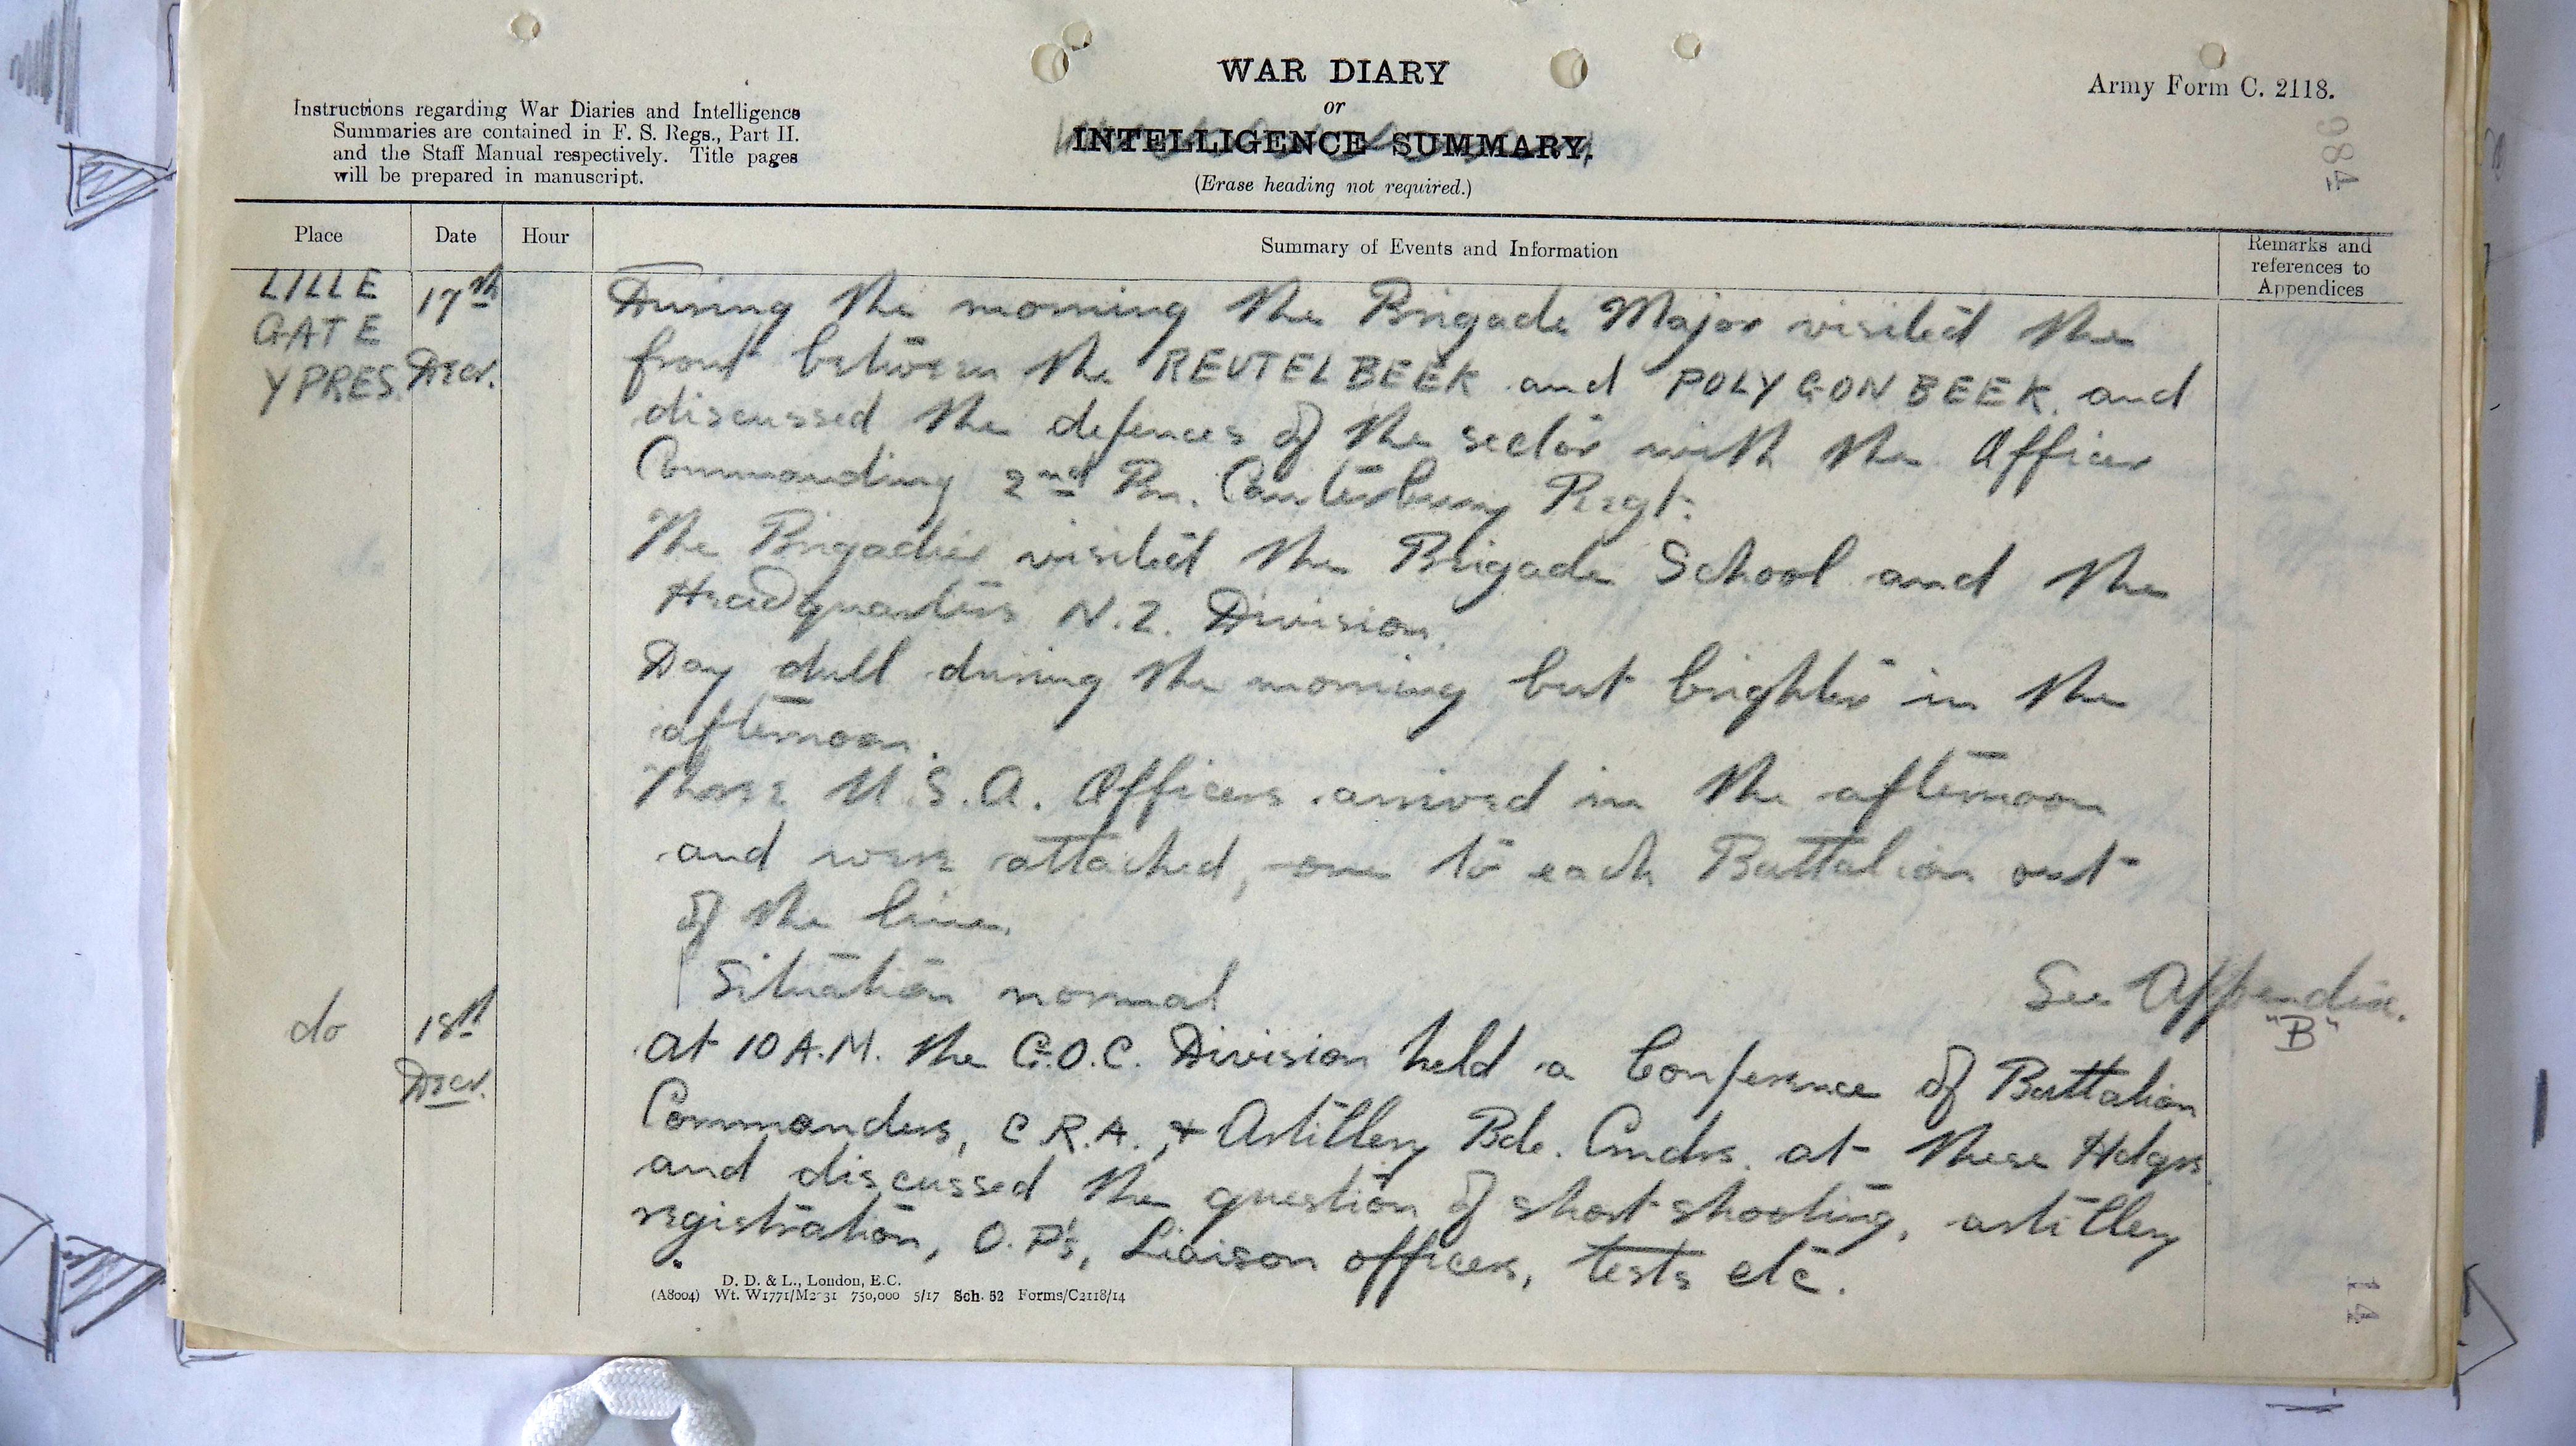 WAR DIARY
or
INTELLIGENCE SUMMARY.
(Erase heading not required.)
Army Form C. 2118.
Instructions regarding War Diaries and Intelligence
Summaries are contained in F. S. Regs., Part II.
and the Staff Manual respectively. Title pages
will be prepared in manuscript.
984
Place
Date
Hour
Summary of Events and Information
Remarks and
references to
Appendices
LILLE
GATE
YPRES.
17th
Decr.
During the morning the Brigade Major visited the
front between the REUTELBEEK and POLYGONBEEK and
discussed the defences of the sector with the Officer
Commanding 2nd Bn. Canterbury Regt.
The Brigadier visited the Brigade School and the
Headquarters N.Z. Division.
Day dull during the morning but brighter in the
afternoon.
Three U.S.A. Officers arrived in the afternoon
and were attached, one to each Battalion out
of the line.
Situation normal
See Appendix.
"B"
do
18th
Decr.
At 10 A.M. the G.O.C. Division held a Conference of Battalion
Commanders, C.R.A., & Artillery Bde. Cmdrs. at these Hdqrs.
and discussed the question of short shooting, artillery
registration, O.P's, Liaison officers, tests etc.
D. D. & L., London, E.C.
(A8004) Wt. W1771/M2-31 750,000 5/17 Sch. 52 Forms/C2118/14
14